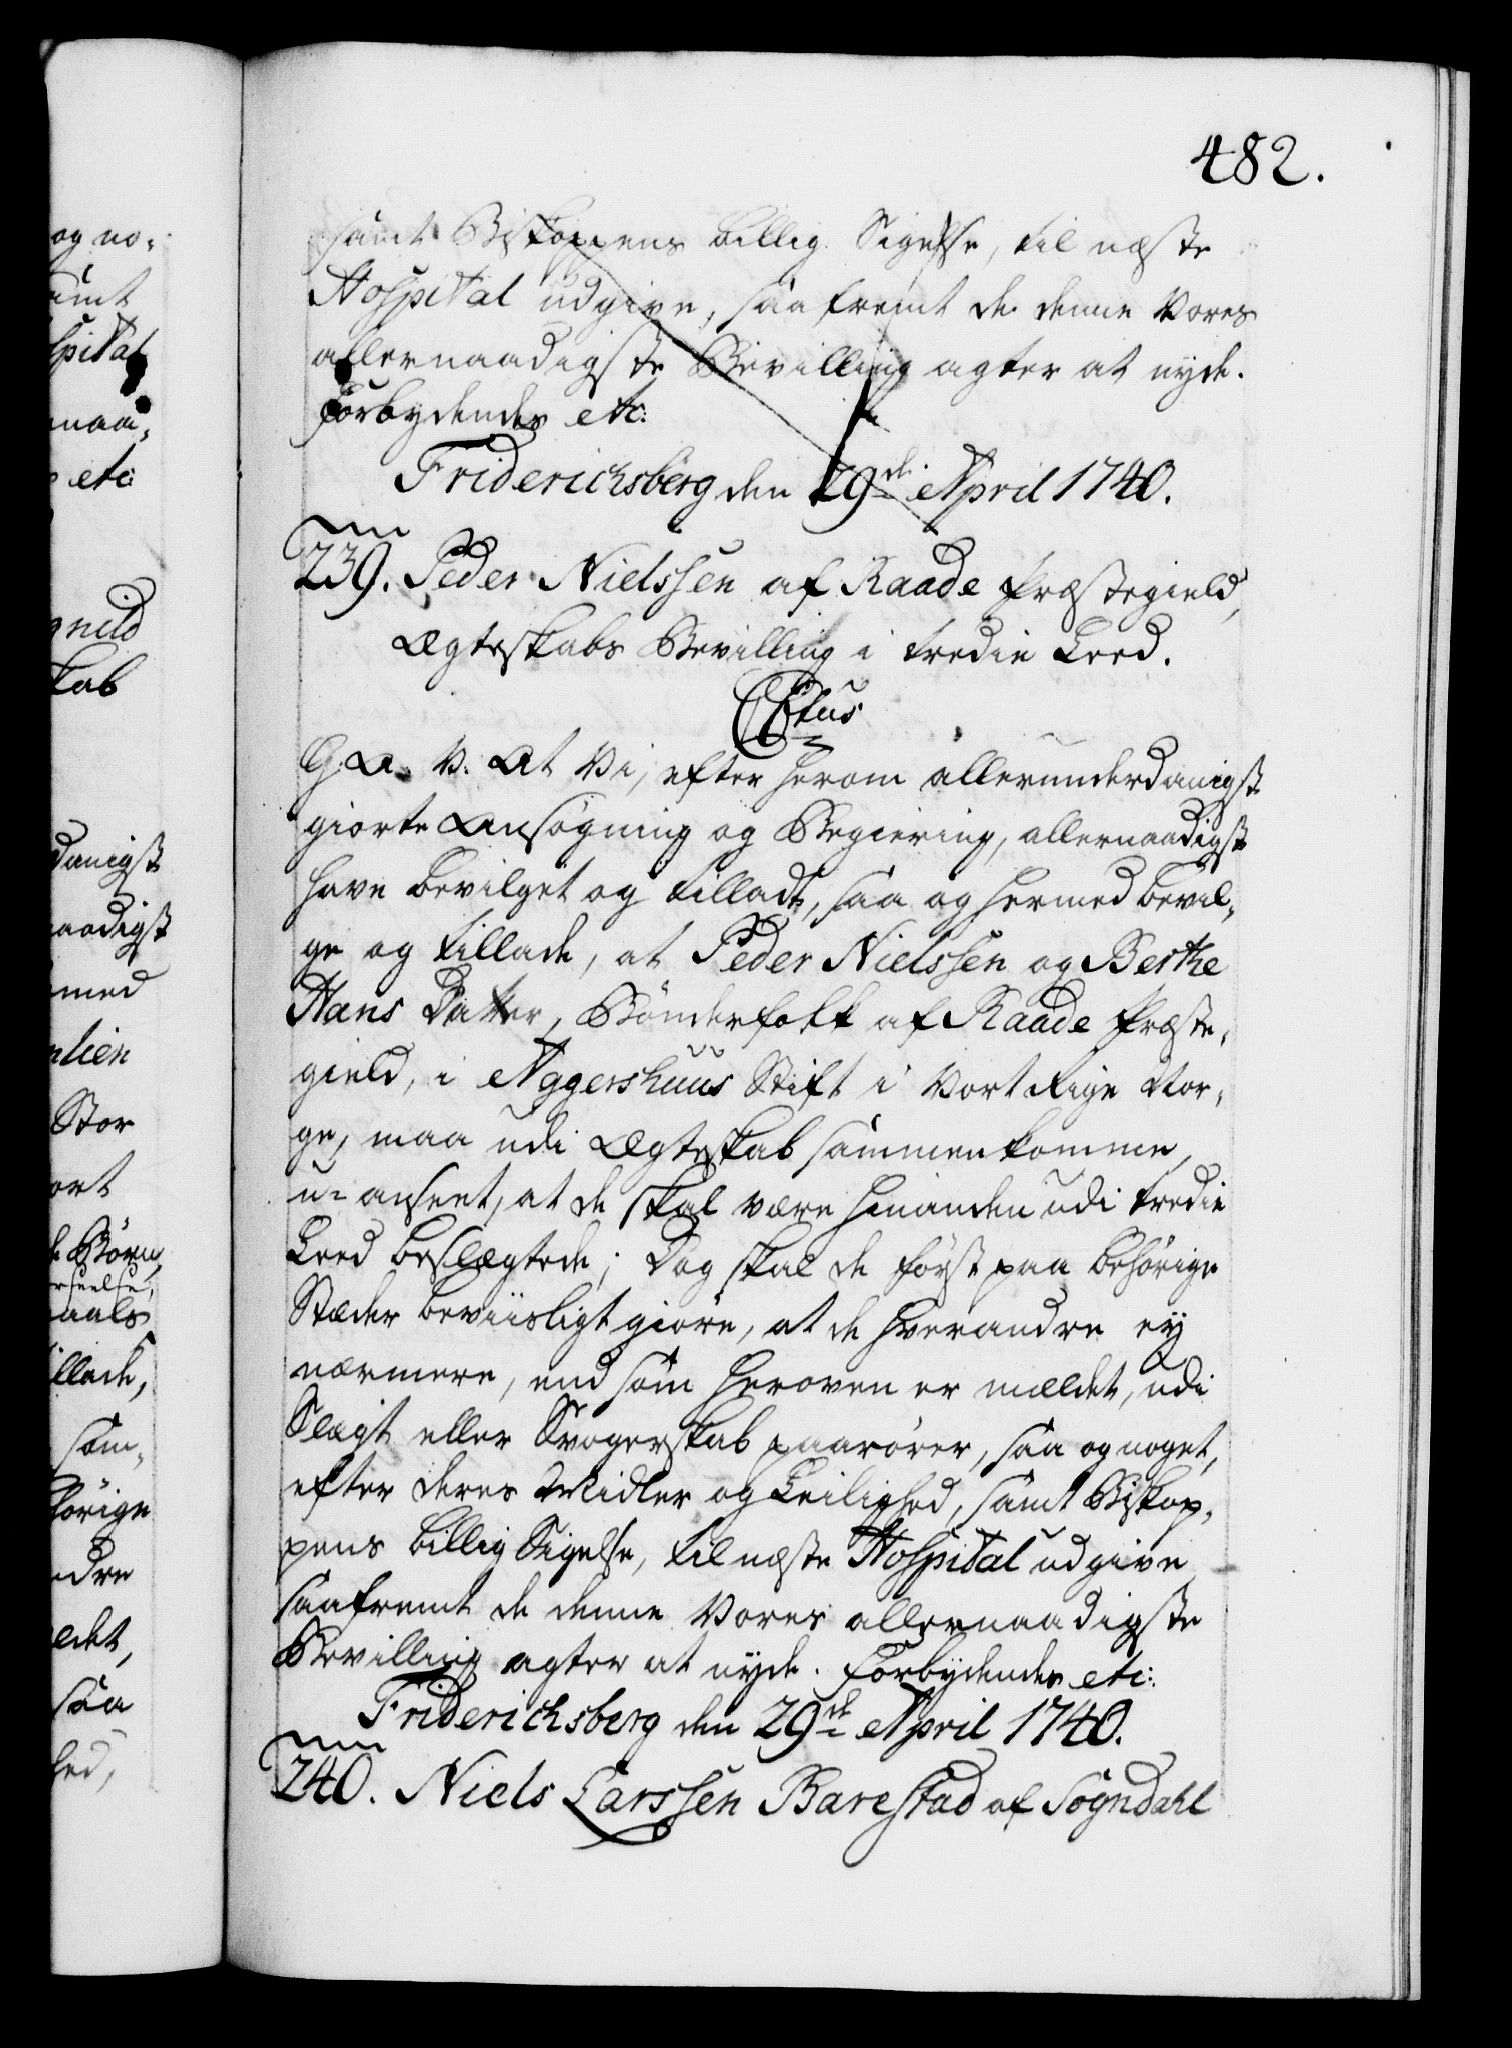 482.
samt Biskoppens billig Sigelse, til næste
Hospital udgive, saafremt de denne Vores
allernaadigste Bevilling agter at nyde.
Forbydendes etc:
Friderichsberg den 29de April 1740.
239. Peder Nielssen af Raade Præstegield,
Ægteskabs Bevilling i tredie Leed.
C6tus
G. A. V. At Vi, efter herom allerunderdanigst
giorte Ansøgning og Begiering, allernaadigst
have bevilget og tilladt, saa og hermed bevil-
ge og tillade, at Peder Nielssen og Berthe
Hans Datter, Bønderfolk af Raade Præste-
gield, i Aggershuus Stift i Vort Rige Nor-
ge, maa udi Ægteskab sammenkomme,
u-anseet, at de skal være hinanden udi tredie
Leed beslægtede; Dog skal de først paa behörige
Stæder beviisligt giøre, at de hverandre ey
nærmere, end som heroven er meldet, udi
Slægt eller Svogerskab paarører, saa og noget,
efter deres Midler og Leilighed, samt Biskop-
pens billig Sigelse, til næste Hospital udgive
saafremt de denne Vores allernaadigste
Bevilling agter at nyde. Forbydendes etc:
Friderichsberg den 29de April 1740.
240. Niels Larssen Barestad af Sogndahl
og no-
amt
spital
naa-
etc:
gneld
kab
danigst
aadigst
med
nlien
Stor
ort
de Børn,
rseelse,
aals
illade,
sam-
hörige
ndre
eldet,
saa
hed,